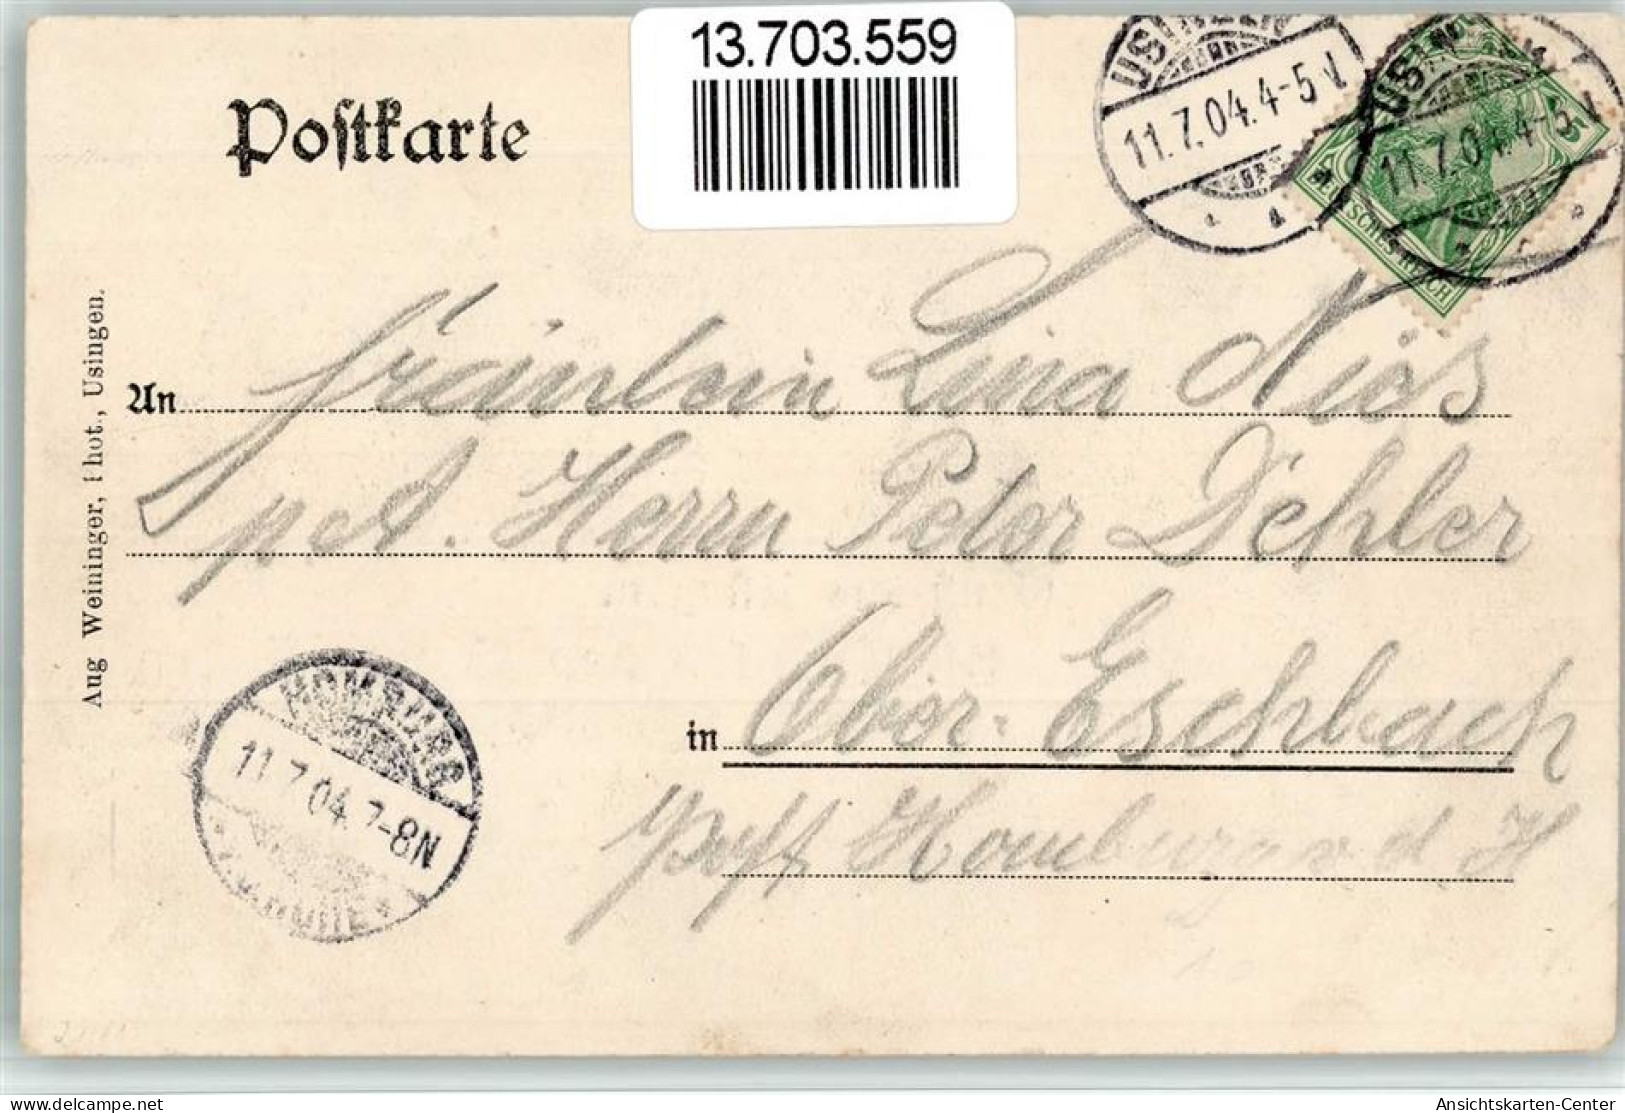 13.703.559
Postkarte
USINGEN
11.7.04.4-5N
USINGEN
11.7.04.4-5N
DEUTSCHES REICH
5
An Fräulein Lina Niós
p. A. Herrn Peter Dehler
in Ober-Eschbach
Post Homburg v. d. H
Aug Weininger, Phot., Usingen.
HOMBURG
11.7.04.7-8N
delcampe.net
Ansichtskarten-Center